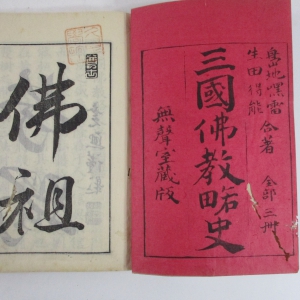 島地黙雷
生田得能 合著 全部三冊
三國佛教略史
無聲堂藏版
佛祖